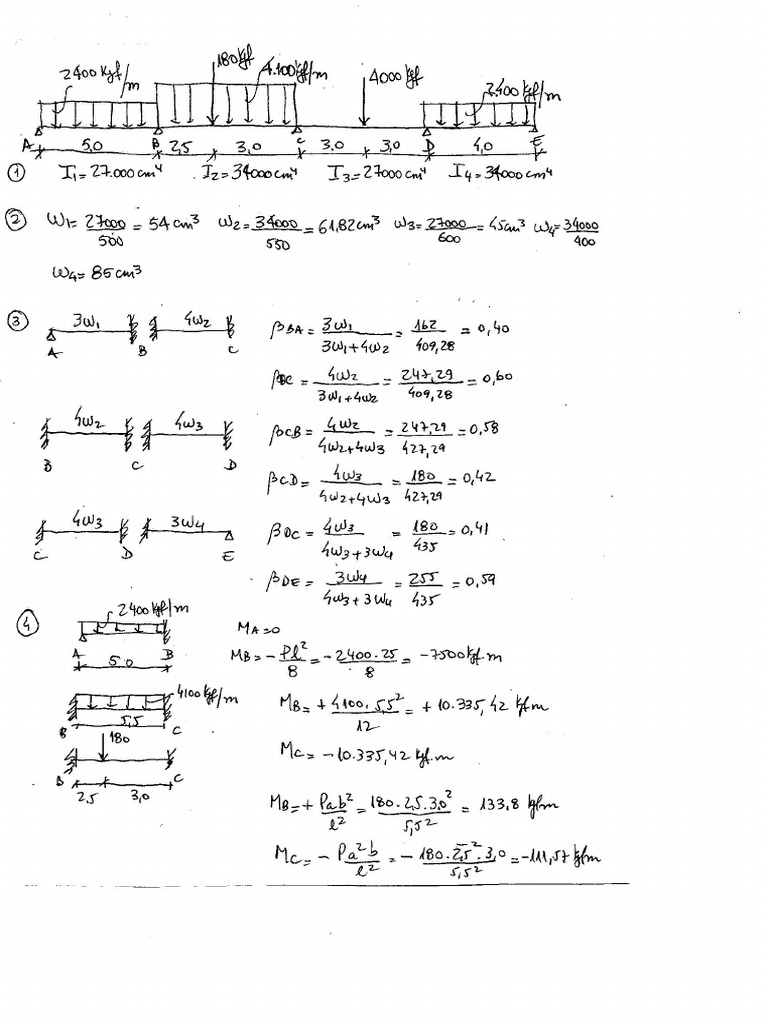 2400 kgf/m 180kgf 4.100kgf/m 4000 kgf 2.400 kgf/m
A 5,0 B 2,5 3,0 C 3,0 3,0 D 4,0 E
① I₁=27.000cm⁴ I₂=34000cm⁴ I₃=27000cm⁴ I₄=34000cm⁴
② W₁=27000/500=54cm³ W₂=34000/550=61,82cm³ W₃=27000/600=45cm³ W₄=34000/400
W₄=85cm³
③ 3W₁ 4W₂ βBA=3W₁/3W₁+4W₂=162/409,28=0,40
A B C
βBC=4W₂/3W₁+4W₂=247,29/409,28=0,60
4W₂ 4W₃ βCB=4W₂/4W₂+4W₃=247,29/427,29=0,58
B C D
βCD=4W₃/4W₂+4W₃=180/427,29=0,42
4W₃ 3W₄ βDC=4W₃/4W₃+3W₄=180/435=0,41
C D E
βDE=3W₄/4W₃+3W₄=255/435=0,59
④ 2400kgf/m
MA=0
A 5.0 B
MB=-Pl²/8=-2400.25/8=-7500kgf.m
4100kgf/m
B 5,5 C
MB=+4100.5,5²/12=+10.335,42 kgf.m
180
MC=-10.335,42 kgf.m
B C
2,5 3,0
MB=+Pab²/l²=180.2,5.3,0²/5,5²=133,8 kgfm
MC=-Pa²b/l²=-180.2,5².3,0/5,5²=-111,57 kgfm